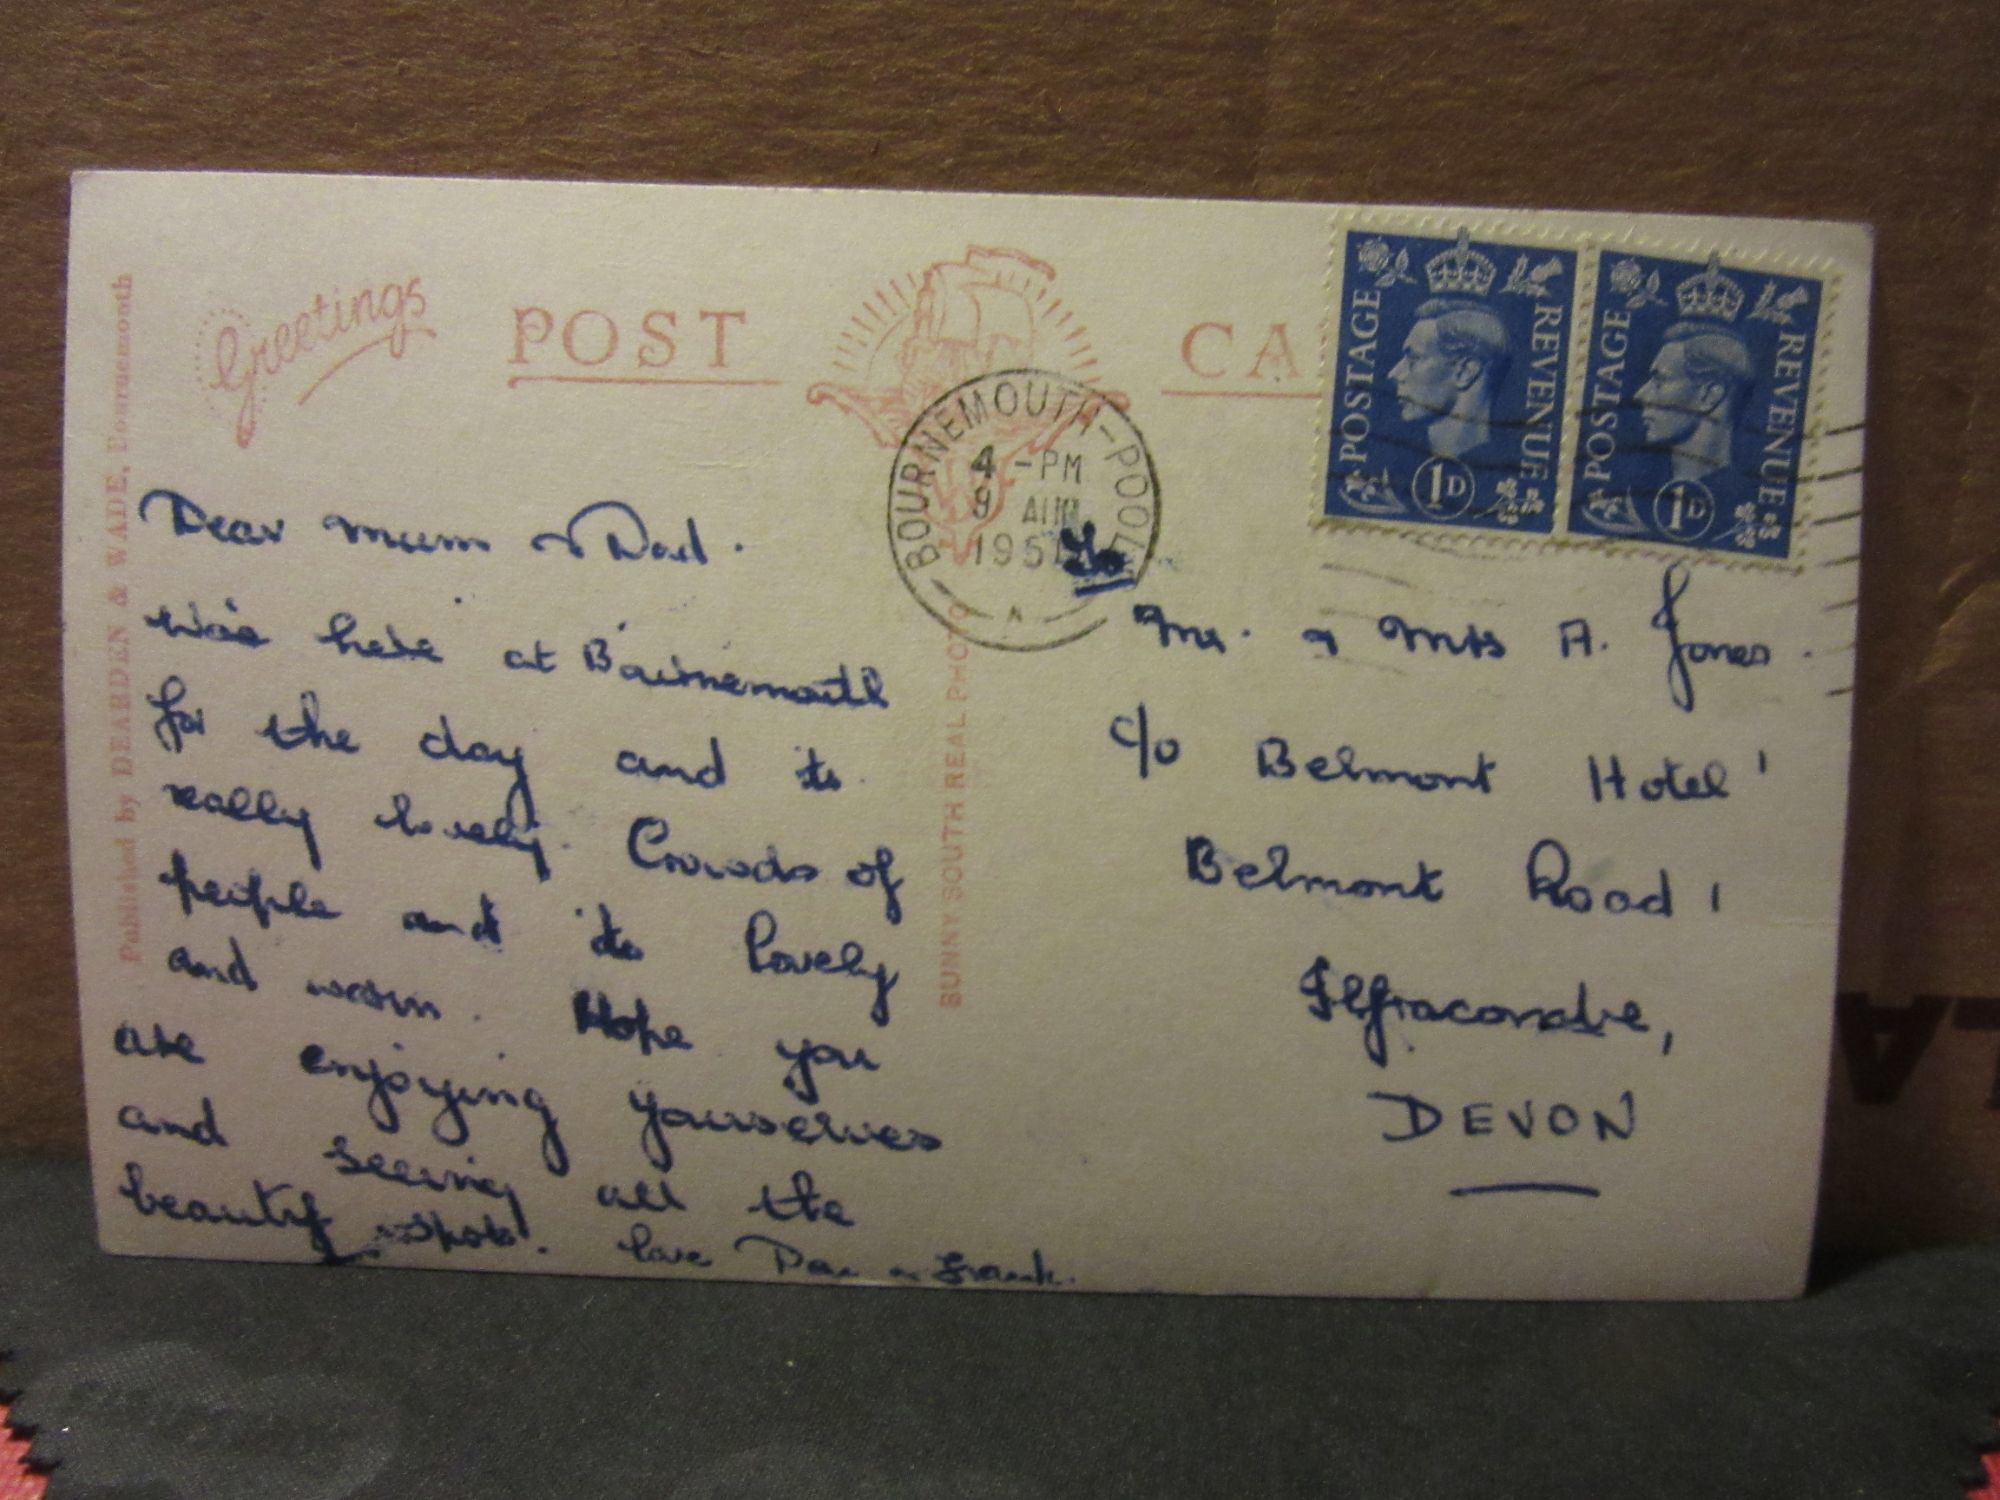 Greetings
POST CA
Published by DEARDEN & WADE, Bournemouth
BUNNY SOUTH REAL PHOTO
BOURNEMOUTH-POOLE
4 -PM
8 AUG
1951
A
POSTAGE REVENUE
1D
POSTAGE REVENUE
1D
Dear Mum & Dad.
We're here at Bournemouth
for the day and its
really lovely. Crowds of
people and its lovely
and warm. Hope you
are enjoying yourselves
and seeing all the
beauty spots. love & Frank.
To
Mr. & Mrs A. Jones.
c/o Belmont Hotel,
Belmont Road,
Ilfracombe,
DEVON